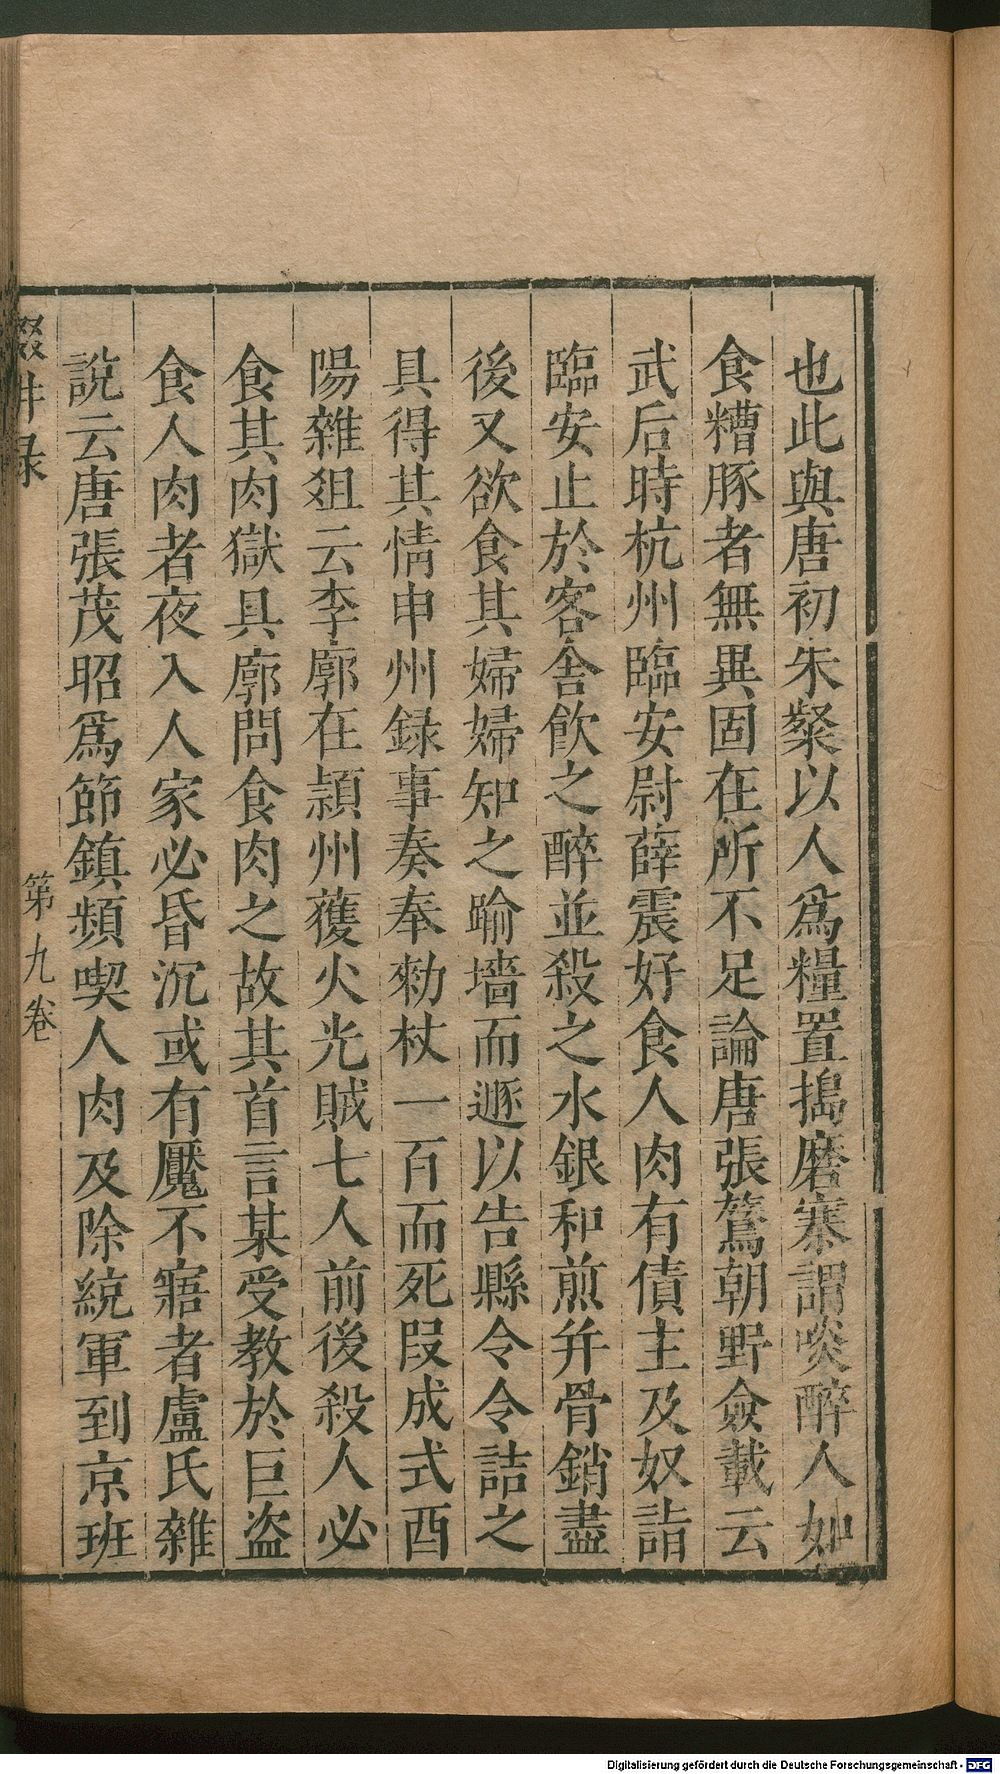 也此與唐初朱粲以人爲糧置擣磨寨謂啖醉人如
食糟豚者無異固在所不足論唐張鷟朝野僉載云
武后時杭州臨安尉薛震好食人肉有債主及奴詣
臨安止於客舍飲之醉並殺之水銀和煎并骨銷盡
後又欲食其婦婦知之踰墻而遯以告縣令令詰之
具得其情申州録事奏奉勑杖一百而死段成式酉
陽雜俎云李廓在潁州獲火光賊七人前後殺人必
食其肉獄具廓問食肉之故其首言某受教於巨盗
食人肉者夜入人家必昏沉或有魘不寤者盧氏雜
說云唐張茂昭爲節鎮頻喫人肉及除統軍到京班
輟耕录
第九卷
Digitalisierung gefördert durch die Deutsche Forschungsgemeinschaft - DFG